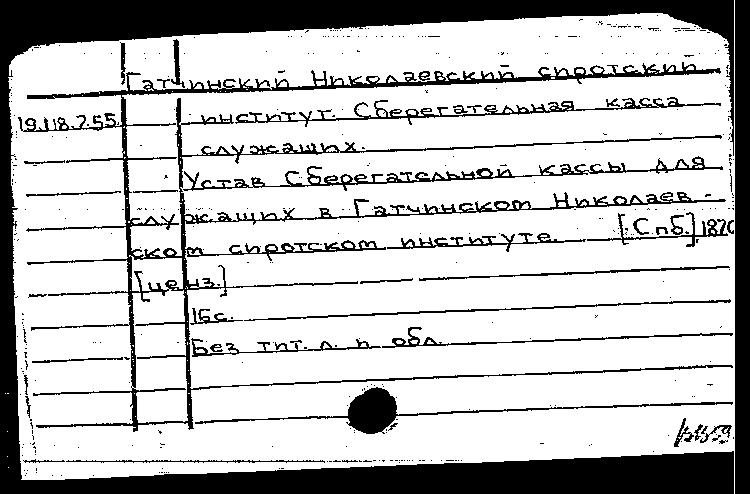 Гатчинский Николаевский сиротский
19.118.7.55. институт. Сберегательная касса
служащих.
Устав Сберегательной кассы для
служащих в Гатчинском Николаев-
ском сиротском институте. [Спб.], 1870
[ценз.]
16с.
Без тит. л. и обл.